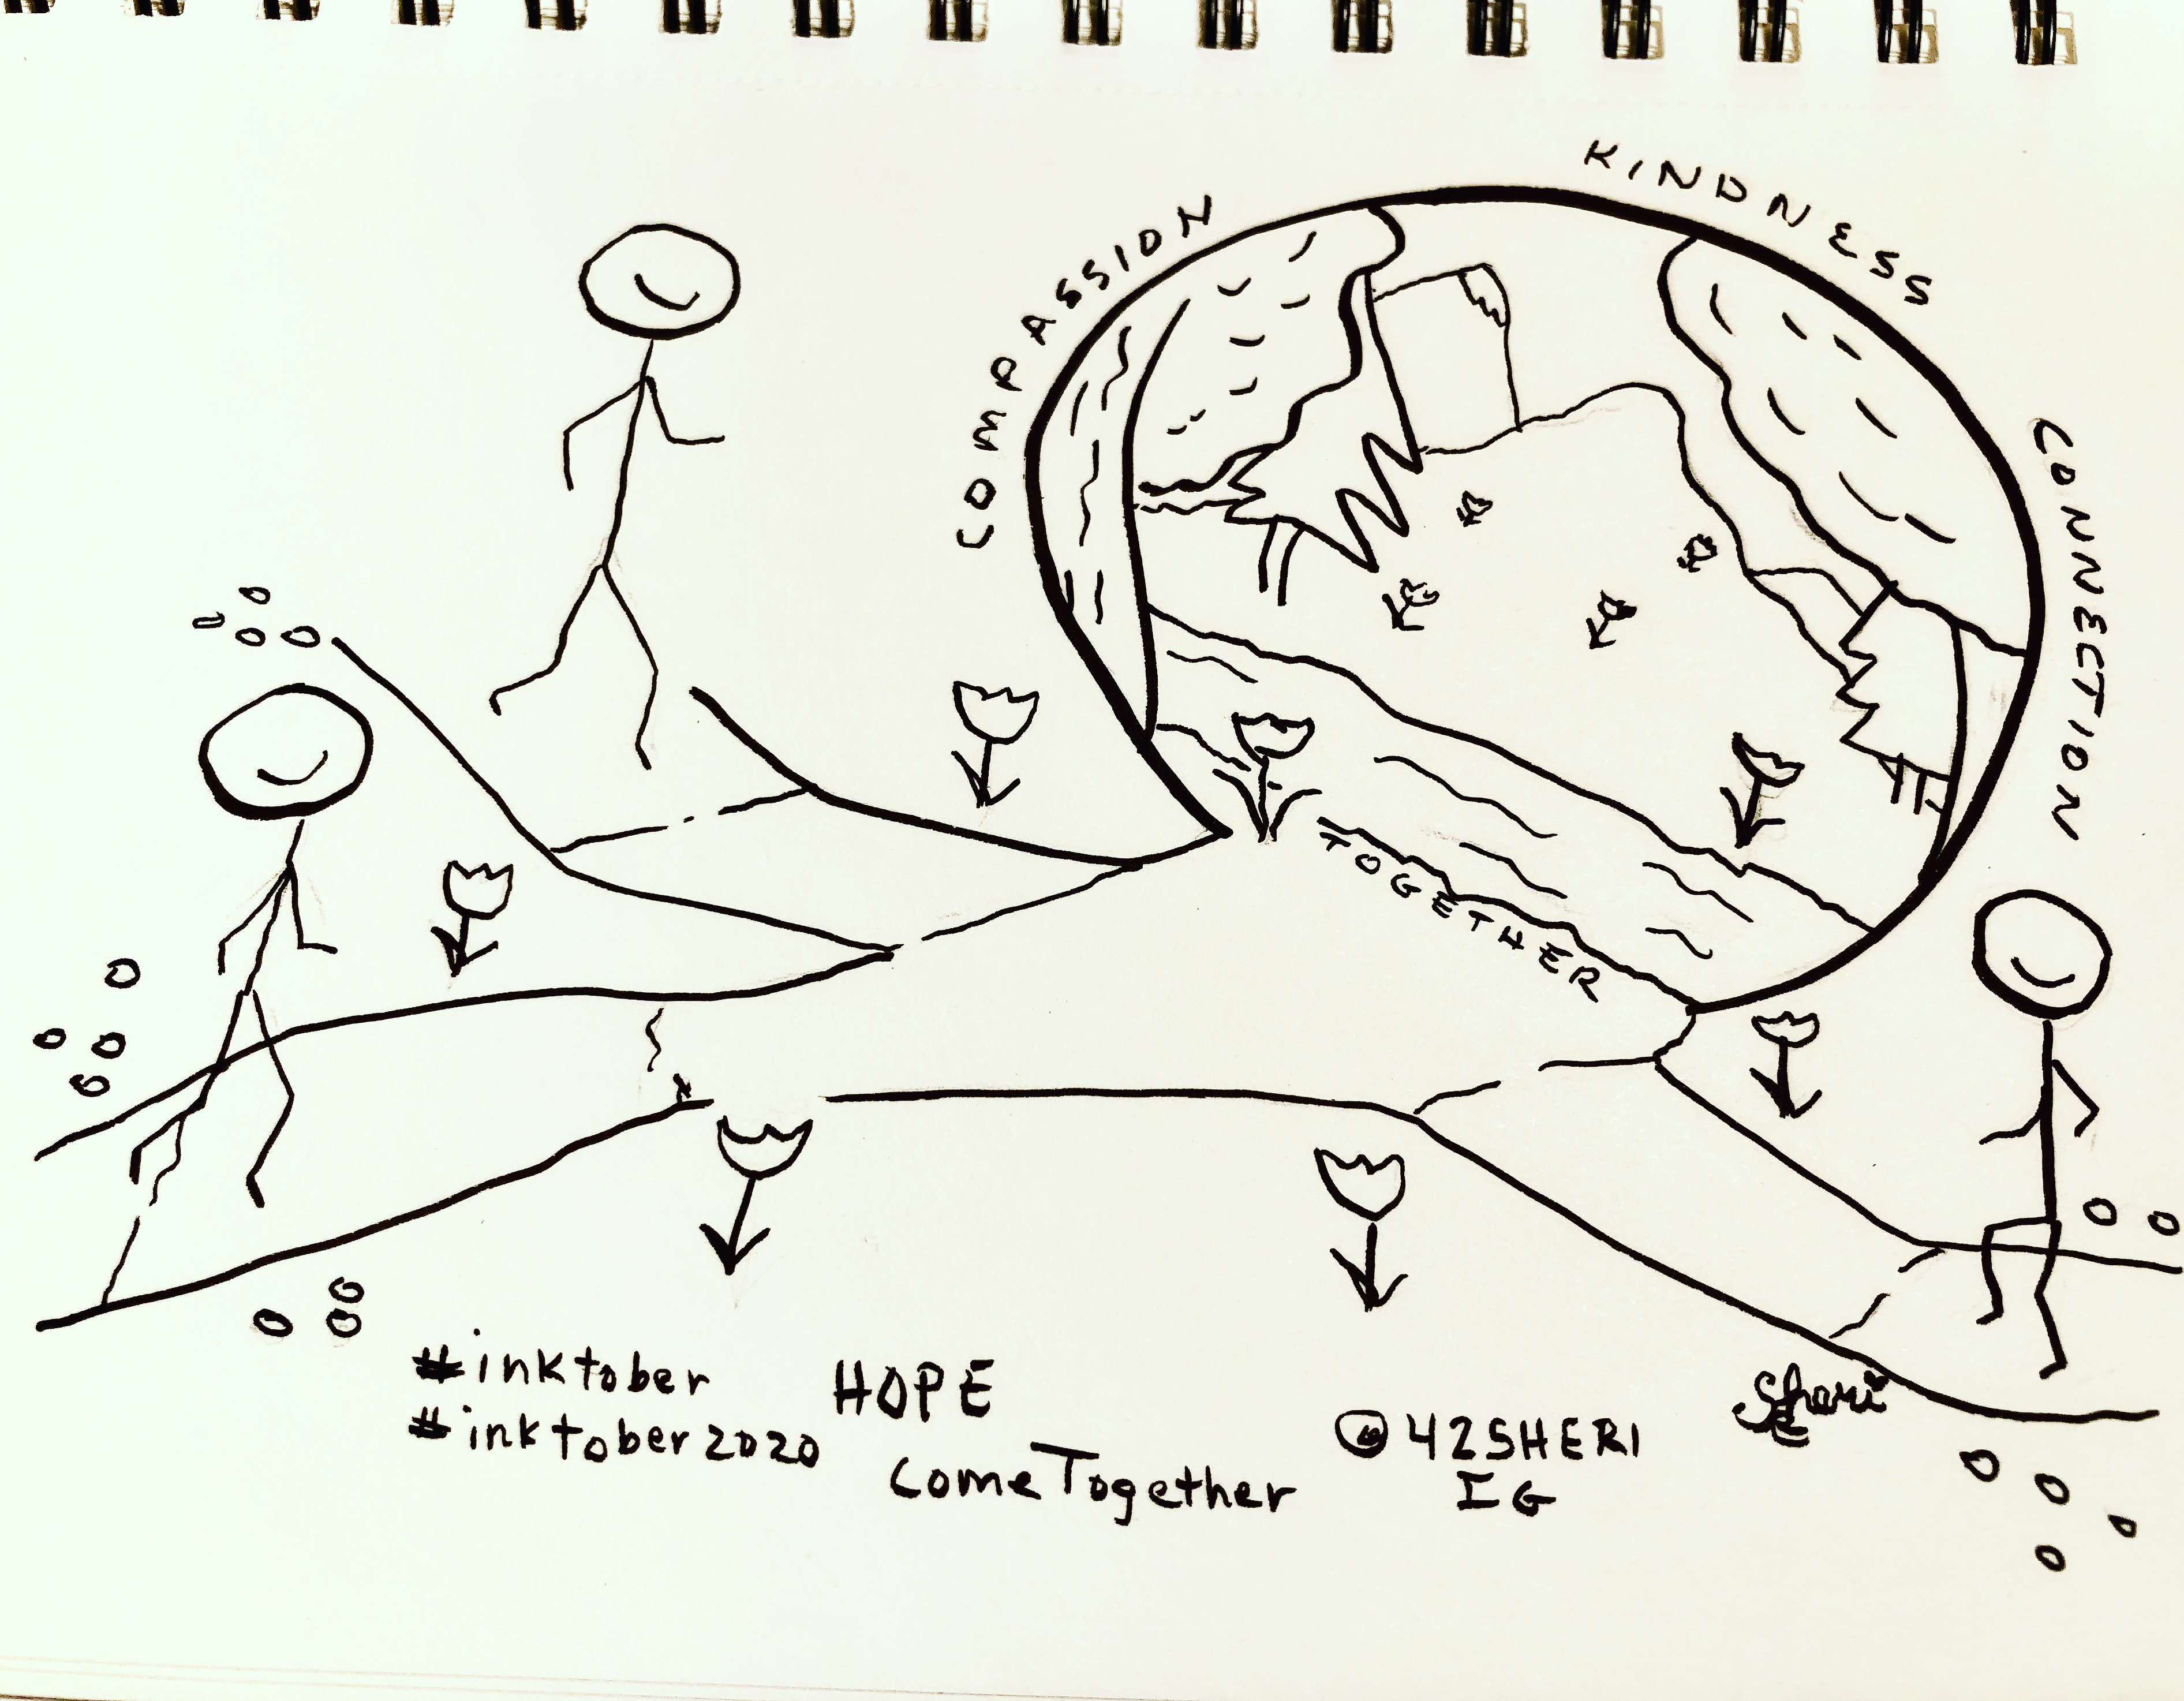 COMPASSION
KINDNESS
CONNECTION
TOGETHER
#inktober
#inktober2020
HOPE
Come Together
@42SHERI
IG
Sheri